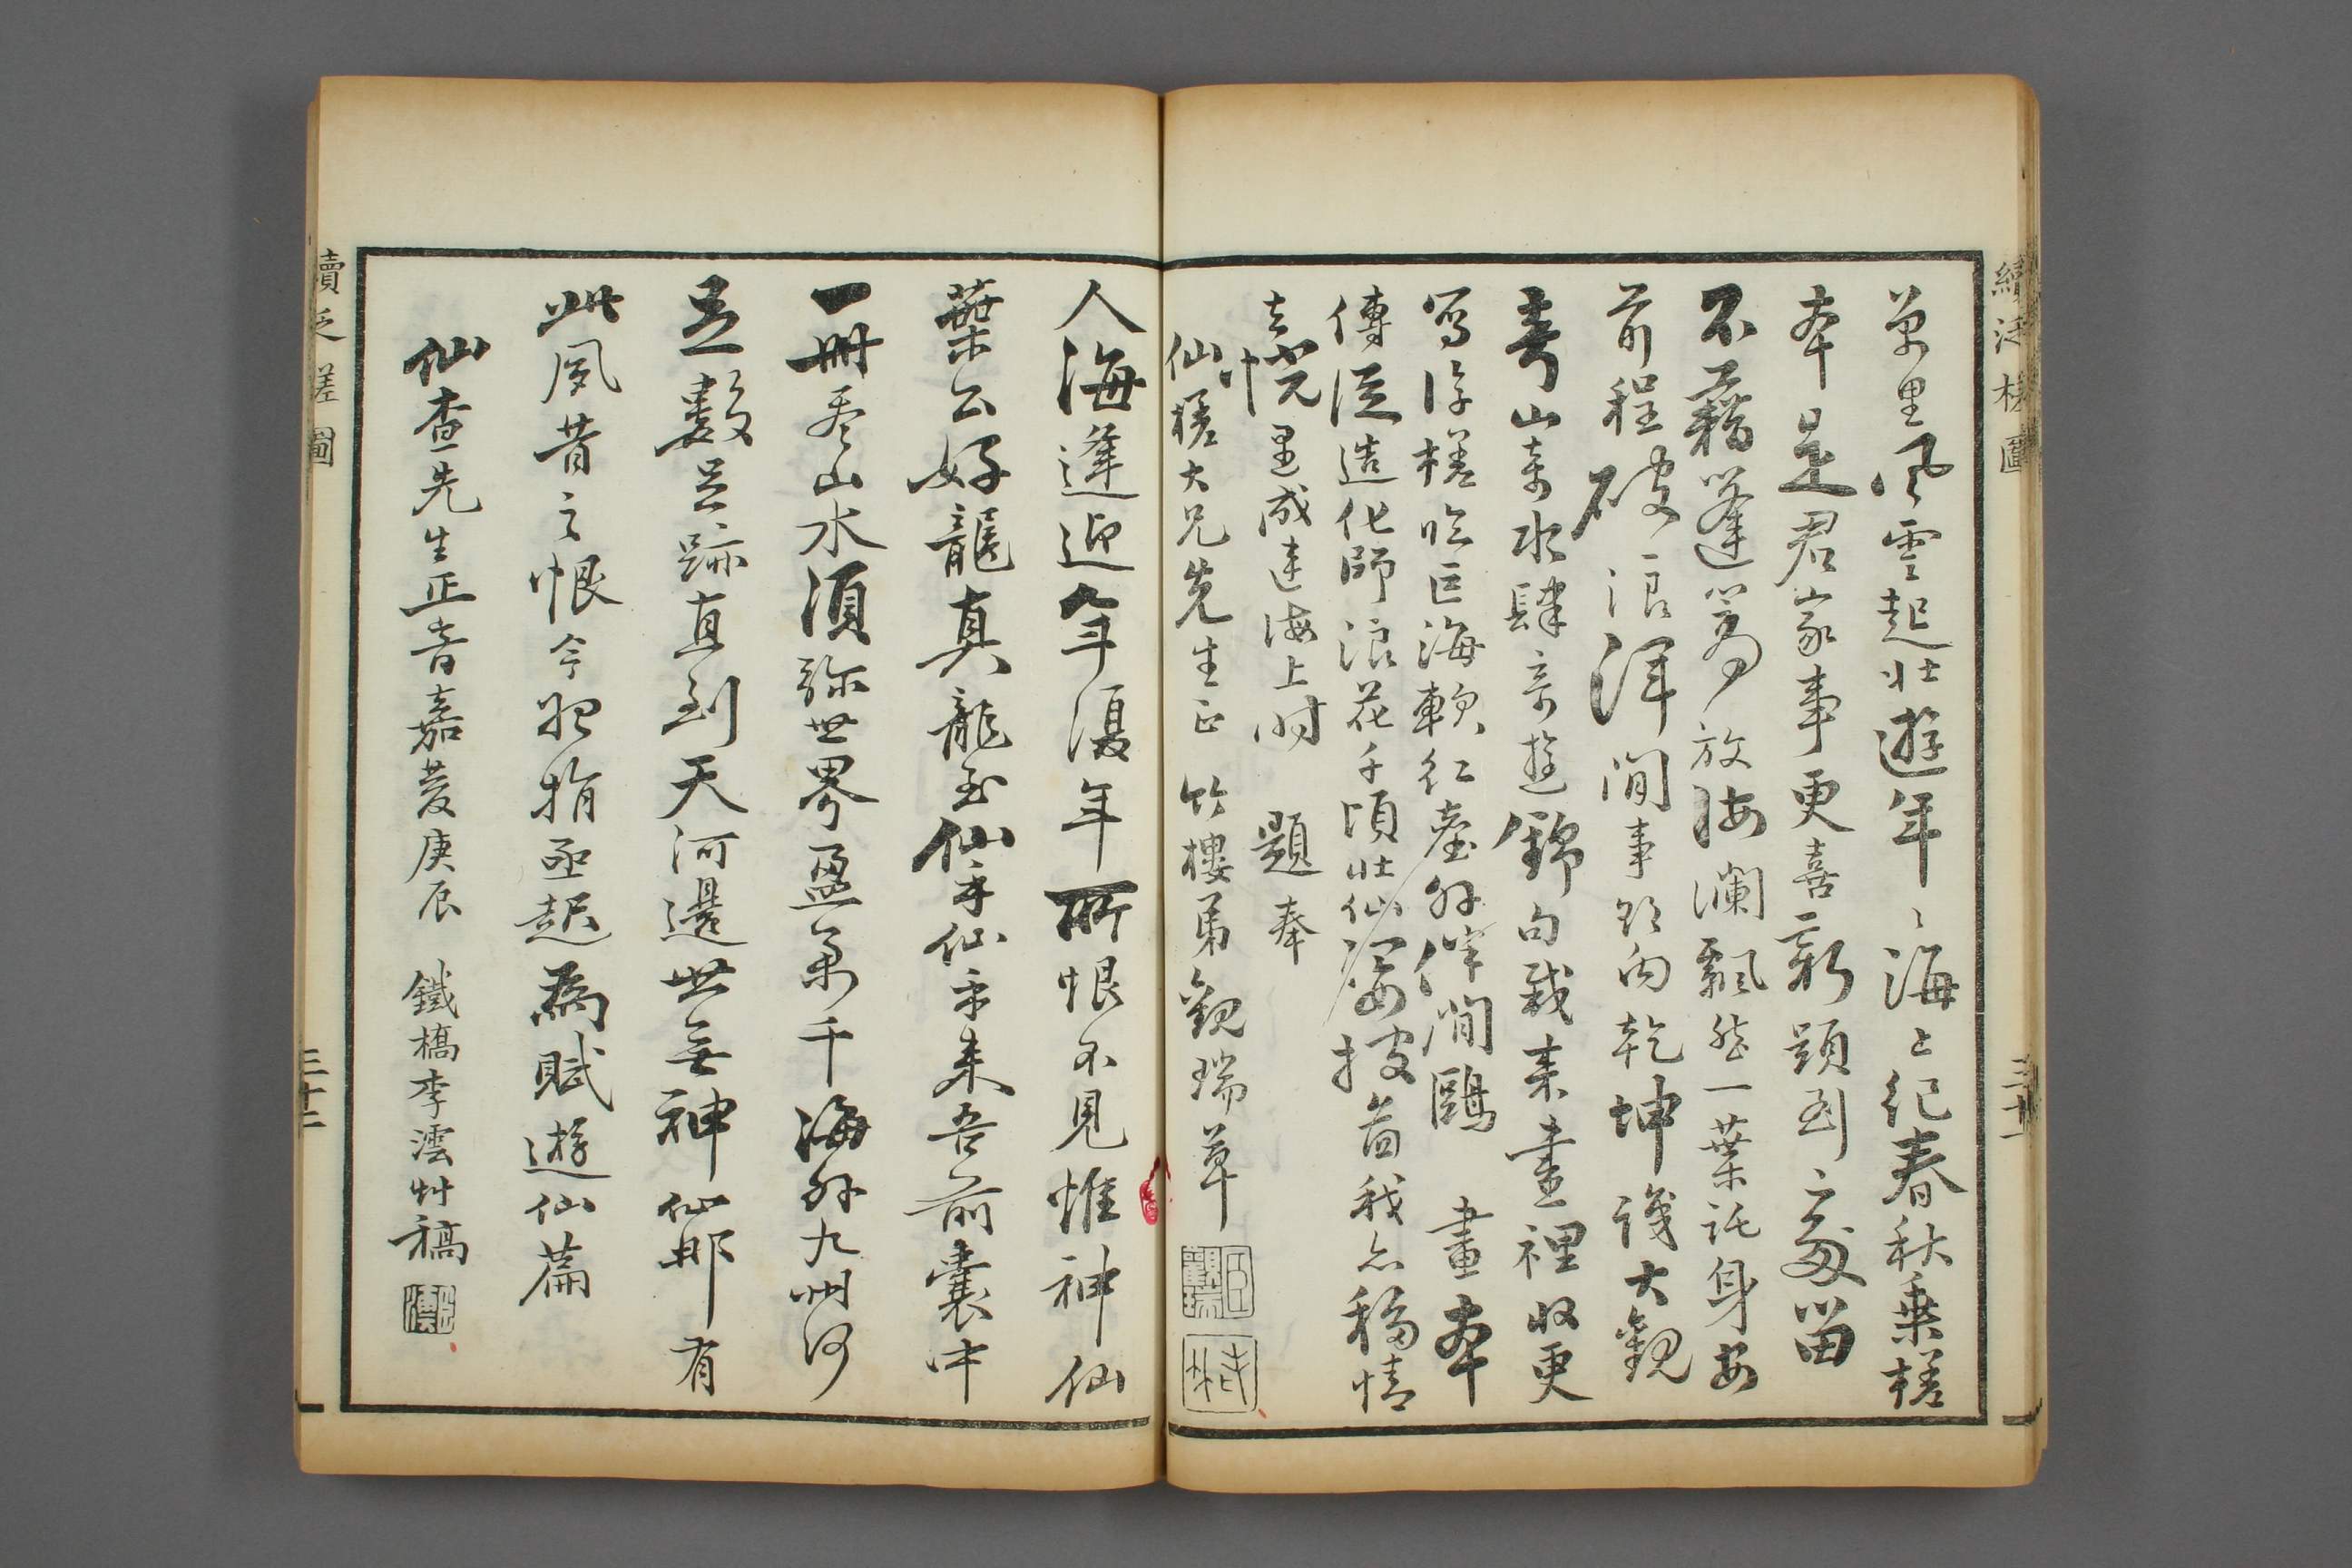 續泛槎圖
三十一
萬里風雲起壯遊年〻海上紀春秋乗槎
本是君家事更喜新題到處留
不藉蓬萬放海瀾飄然一葉託身安
前程破浪渾閒事領略乾坤識大觀
奇山奇水肆奇遊錦句裁来畫裡收更
寫浮槎臨巨海軟紅塵外伴閒鷗 畫本
傳從造化師浪花千頃壯仙姿披圖我亦移情
去恍 成連海上時 題奉
仙槎大兄先生正 竹樓弟觀瑞草
臣觀瑞
人海逢迎年復年所恨不見惟神仙
葉公好龍真龍至仙乎仙乎来吾前囊中
一冊盡山水須彌世界盈萬千海外九州何
足數足跡直到天河邊世無神仙耶有
此夙昔之恨今 捐亟起為賦遊仙篇
仙查先生正音嘉慶庚辰 鐵橋李澐艸稿
續泛槎圖
三十二